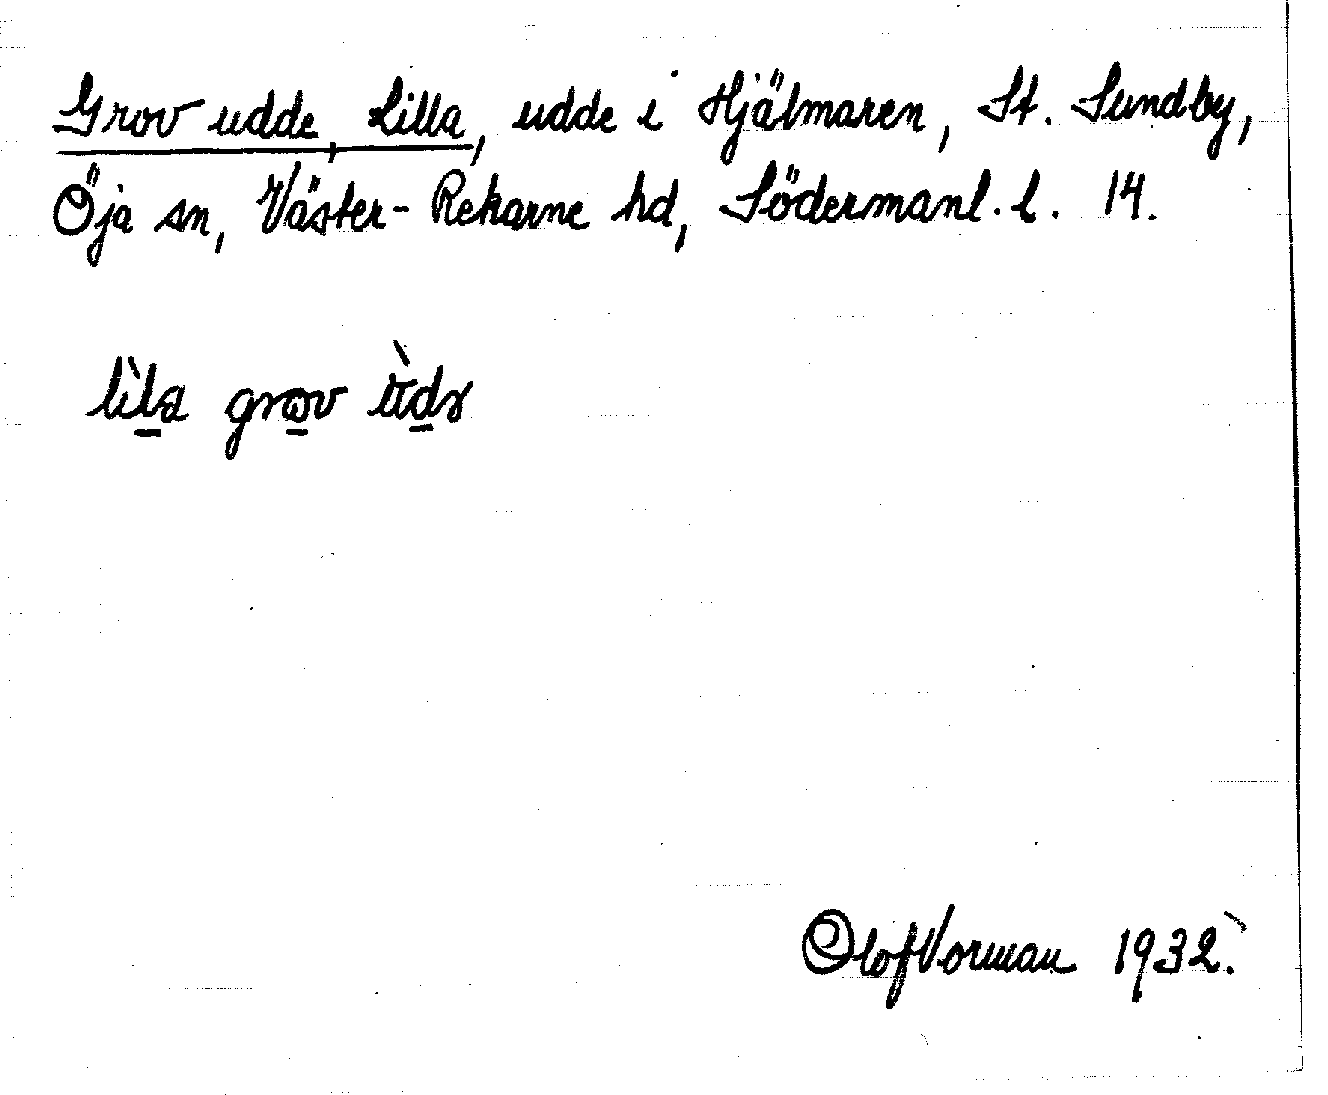 Grov udde, Lilla, udde i Hjälmaren, St. Sundby,
Öja sn, Väster-Rekarne hd, Södermanl. l. 14.
lìla grov ùdə
Olof Vorman 1932.